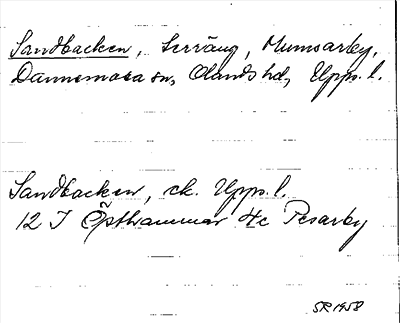 Sandbacken, Terräng, Mumsarby,
Dannemora sn, Olands hd, Upps. l.
Sandbacken, ek. Upps. l.
12 I Östhammar 4c Pesarby
SR 1958